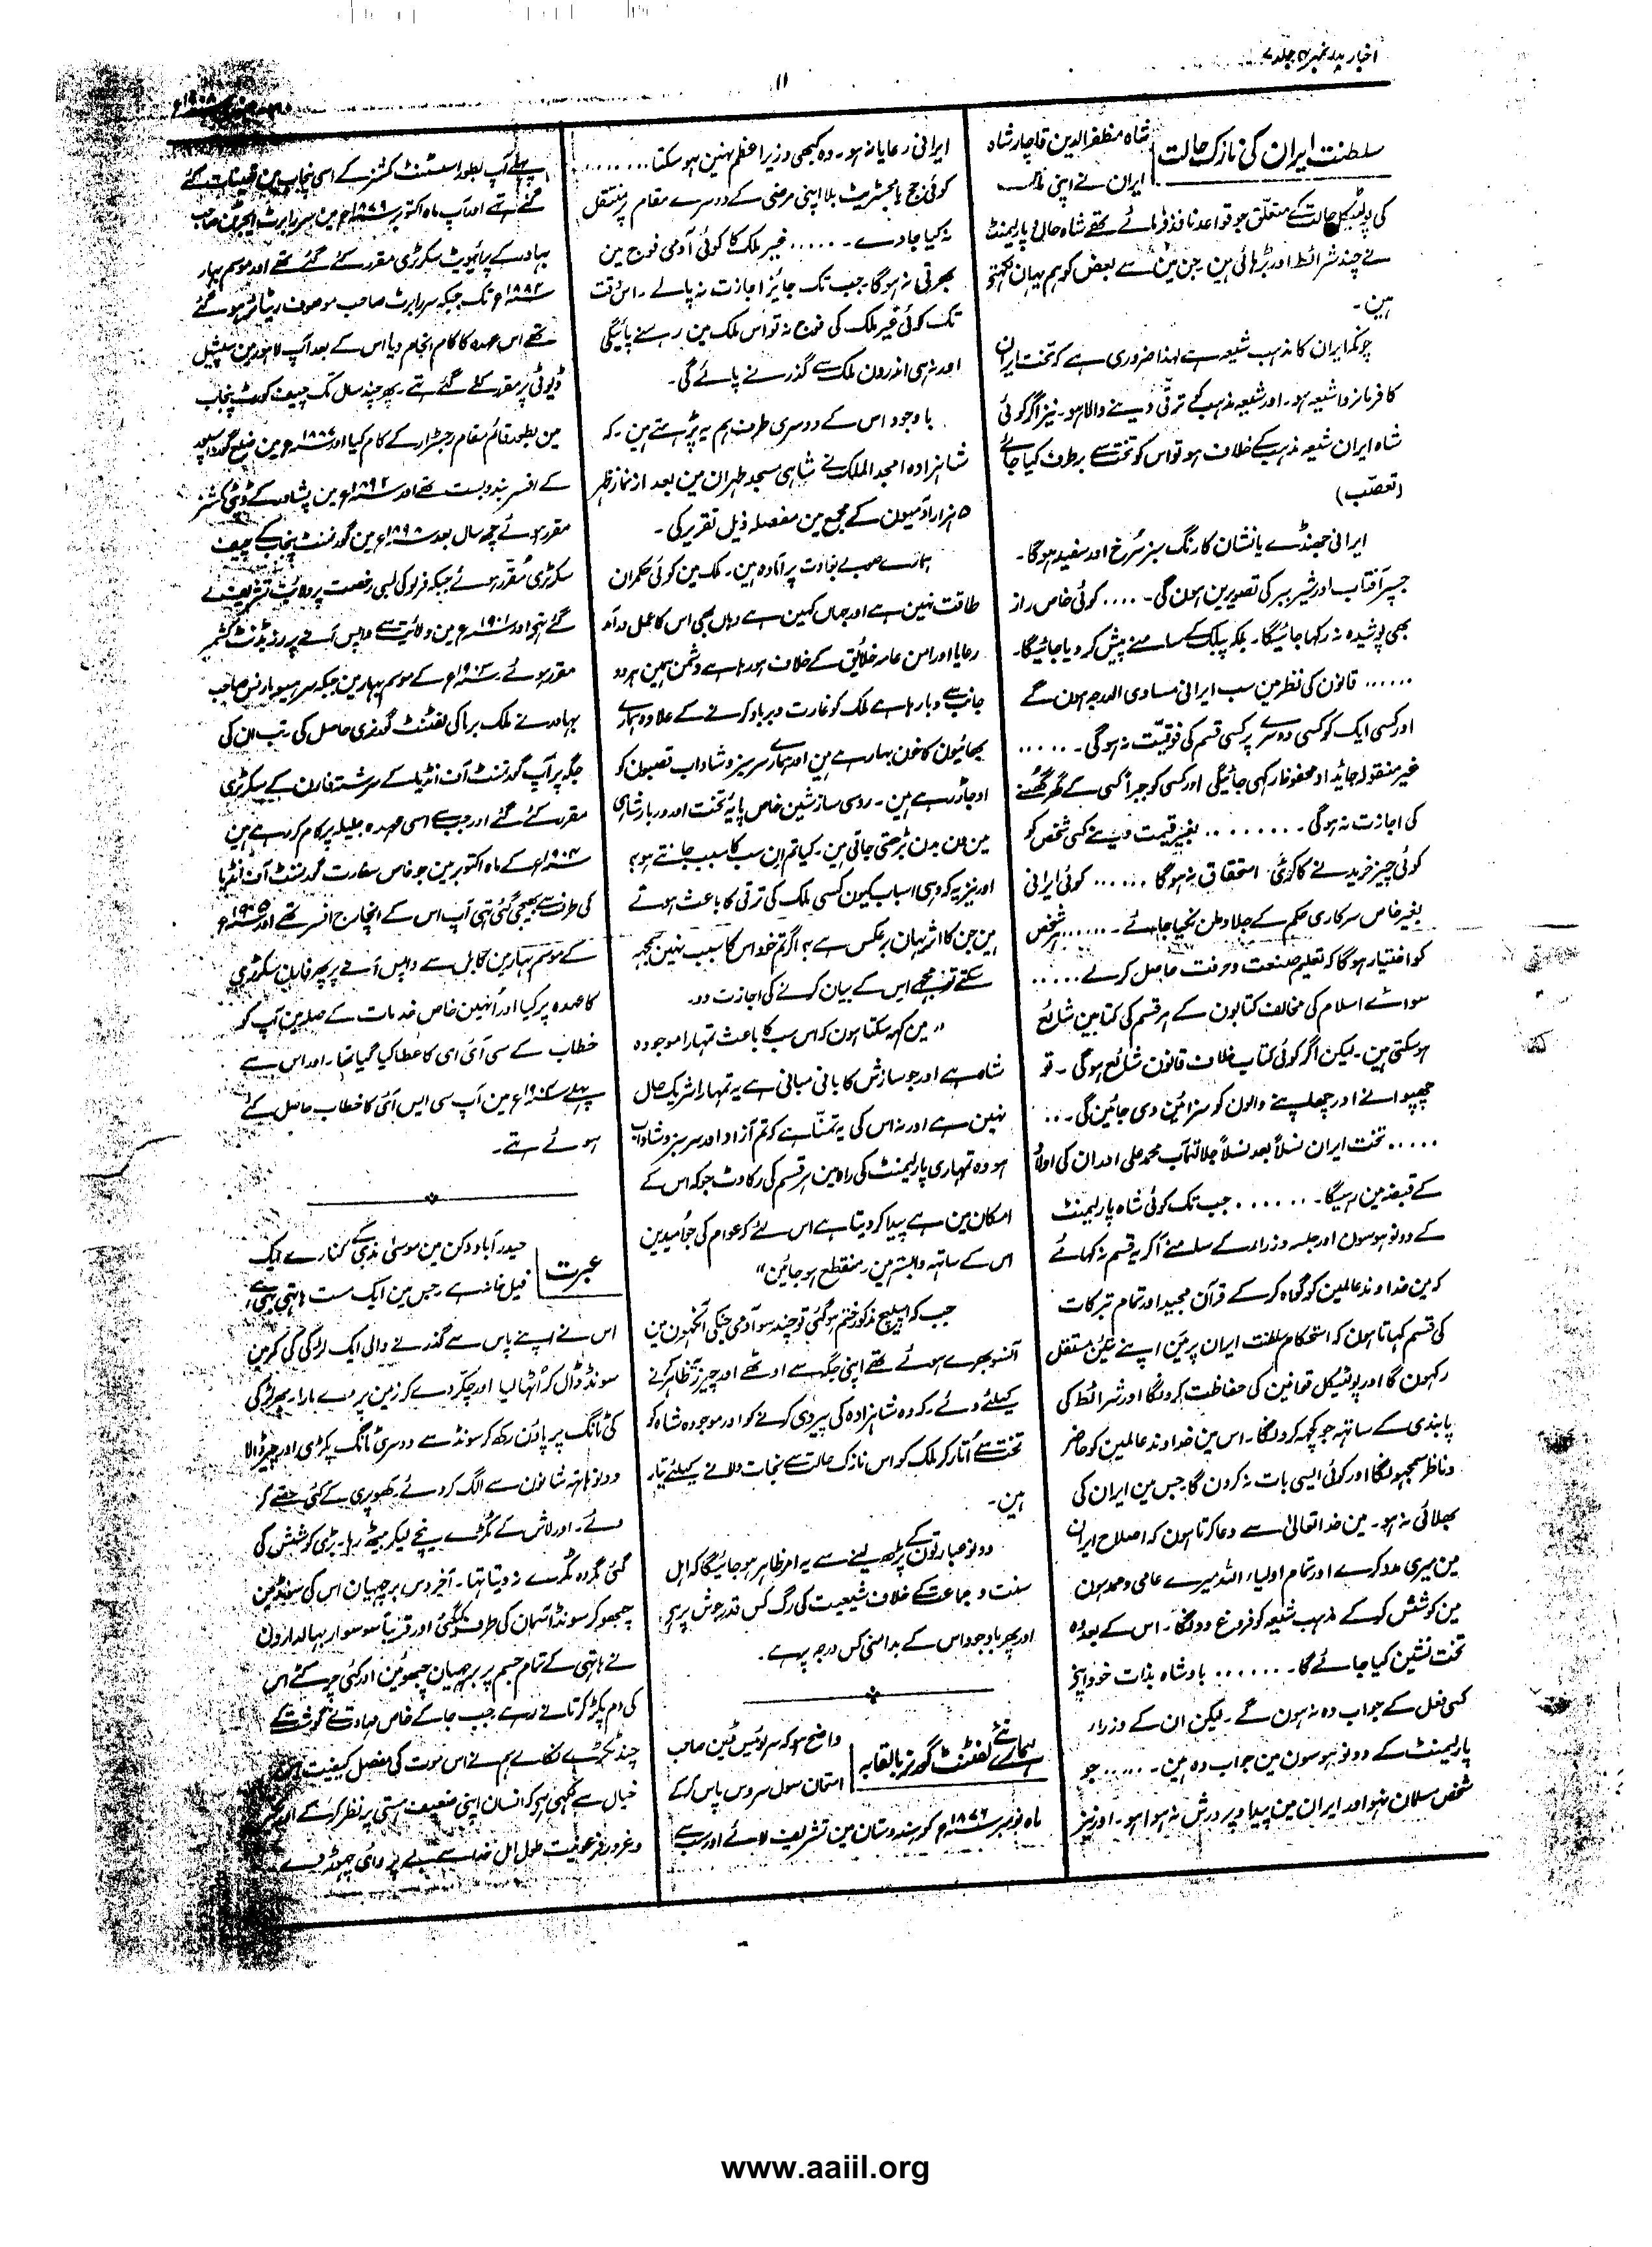 اخبار بدر نمبر ۴ جلد ۷
۱۱
سلطنت ایران کی نازک حالت
شاہ مظفر الدین قاچار شاہ
ایران نے اپنی ملک
کی پولیٹیکل حالت کے متعلق جو قواعد نافذ فرمائے تھے شاہ حال و پارلیمنٹ
نے چند شرائط اور بڑہائی ہین۔ جن مین سے بعض کو ہم یہان لکھتے
ہین۔
چونکہ ایران کا مذہب شیعہ ہے لہذا ضروری ہے کہ تخت ایران
کا فرمانروا شیعہ ہو۔ اور شیعہ مذہب کو ترقی دینے والا ہو۔ نیز اگر کوئی
شاہ ایران شیعہ مذہب کے خلاف ہو تو اس کو تخت سے برطرف کیا جائے
(تعصّب)
ایرانی جھنڈے یا نشان کا رنگ سبز سُرخ اور سفید ہو گا۔
جسپر آفتاب اور شیر ببر کی تصویرین ہون گی۔ .... کوئی خاص راز
بھی پوشیدہ نہ رکھا جائیگا۔ بلکہ پبلک کے سامنے پیش کر دیا جائیگا۔
...... قانون کی نظر مین سب ایرانی مساوی الدرجہ ہون گے
اور کسی ایک کو کسی دوسرے پر کسی قسم کی فوقیّت نہ ہو گی۔ ......
غیر منقولہ جائیداد محفوظ رکہی جائیگی اور کسی کو جبراً کسی کے گھر گھُسنے
کی اجازت نہ ہو گی۔ ........ بغیر قیمت دیئے کسی شخص کو
کوئی چیز خریدنے کا کوئی استحقاق نہ ہو گا ...... کوئی ایرانی
بغیر خاص سرکاری حکم کے جلا وطن نکیا جائے۔ ...... ہر شخص
کو اختیار ہو گا کہ تعلیم صنعت و حرفت حاصل کرے .....
سوائے اسلام کی مخالف کتابون کے ہر قسم کی کتابین شائع
ہو سکتی ہین۔ لیکن اگر کوئی کتاب خلاف قانون شائع ہو گی۔ تو
چھپوانے اور چھاپنے والون کو سزائین دی جائین گی۔ ...
..... تخت ایران نسلاً بعد نسلاً جلالتمآب محمد علی اور ان کی اولاد
کے قبضہ مین رہیگا۔ ...... جب تک کوئی شاہ پارلیمنٹ
کے دونو ہوسون اور جلسہ وزراء کے سامنے آکر یہ قسم نہ کہائے
کہ مین خداوند عالمین کو گواہ کر کے قرآن مجید اور تمام تبرکات
کی قسم کہاتا ہون کہ استحکام سلطنت ایران پر مَین اپنے تئین مستقل
رکہون گا اور پولٹیکل قوانین کی حفاظت کرونگا اور شرائط کی
پابندی کے ساتھ جو کچھ کرونگا۔ اس مین خداوند عالمین کو حاضر
و ناظر سمجھونگا اور کوئی ایسی بات نہ کرون گا جس مین ایران کی
بھلائی نہ ہو۔ مین خدا تعالیٰ سے دعا کرتا ہون کہ اصلاح ایران
مین میری مدد کرے اور تمام اولیاء اللہ میرے حامی و ممد ہون
مین کوشش کر کے مذہب شیعہ کو فروغ دونگا۔ اس کے بعد وہ
تخت نشین کیا جائے گا۔ ...... بادشاہ بذات خود اپنے
کسی فعل کے جواب دہ نہ ہون گے۔ لیکن ان کے وزراء
پارلیمنٹ کے دونو ہوسون مین جواب دہ ہین۔ ..... جو
شخص مسلمان نہو اور ایران مین پیدا و پرورش نہ ہوا ہو۔ اور نیز
ایرانی رعایا نہ ہو۔ وہ کبھی وزیر اعظم نہین ہو سکتا .......
کوئی جج یا مجسٹریٹ بلا اپنی مرضی کے دوسرے مقام پر منتقل
نہ کیا جاوے۔ ...... غیر ملک کا کوئی آدمی فوج مین
بھرتی نہ ہو گا۔ جب تک جائز اجازت نہ پالے۔ اس وقت
تک کوئی غیر ملک کی فوج نہ تو اس ملک مین رہنے پائیگی
اور نہ ہی اندرون ملک سے گذرنے پائے گی۔
باوجود اس کے دوسری طرف ہم یہ پڑہتے ہین۔ کہ
شاہزادہ امجد الملک نے شاہی مسجد طہران مین بعد از نماز ظہر
۵ ہزار آدمیون کے مجمع مین مفصلہ ذیل تقریر کی۔
ہمارے صوبے بغاوت پر آمادہ ہین۔ ملک مین کوئی حکمران
طاقت نہین ہے اور جہاں کہین ہے وہاں بھی اس کا عمل درآمد
رعایا اور امن عامہ خلائق کے خلاف ہو رہا ہے دشمن ہمین ہر دو
جانب سے دبا رہا ہے ملک کو غارت و برباد کرنے کے علاوہ ہمارے
بھائیون کا خون بہا رہے ہین اور ہمارے سرسبز و شاداب قصبون کو
اوجاڑ رہے ہین۔ روسی سازشین خاص پایہ تخت اور دربار شاہی
مین دن بدن بڑھتی جاتی ہین۔ کیا تم ان سب کا سبب جانتے ہو؟
اور نیز یہ کہ وہی اسباب کیون کسی ملک کی ترقی کا باعث ہوتے
ہین جن کا اثر یہان برعکس ہے؟ اگر تم خود اس کا سبب نہین سمجھ
سکتے تو مجھے اس کے بیان کرنے کی اجازت دو۔
"مین کہہ سکتا ہون کہ اس سب کا باعث تمہارا موجودہ
شاہ ہے اور جو سازش کا بانی مبانی ہے یہ تمہارا شریک حال
نہین ہے اور نہ اس کی یہ تمنّا ہے کہ تم آزاد اور سرسبز و شاداب
ہو وہ تمہاری پارلیمنٹ کی راہ مین ہر قسم کی رکاوٹ جو کہ اس کے
امکان مین ہے پیدا کر دیتا ہے اس لئے کہ عوام کی جو امیدین
اس کے ساتھ وابستہ ہین۔ منقطع ہو جائین"
جب کہ اسپیچ مذکور ختم ہو گئی تو چند سو آدمی جنکی آنکھون مین
آنسو بھرے ہوئے تھے اپنی جگہ سے اوٹھے اور چیرز ظاہر کرنے
کیلئے دئے۔ کہ وہ شاہزادہ کی پیروی کرنے کو اور موجودہ شاہ کو
تخت سے اُتار کر ملک کو اس نازک حالت سے نجات دلانے کیلئے تیار
ہین۔
دونو عبارتون کے پڑھ لینے سے یہ امر ظاہر ہو جائیگا کہ اہل
سنت و جماعت کے خلاف شیعیت کی رگ کس قدر جوش پر ہے
اور پھر باوجود اس کے بد امنی کس درجہ پر ہے۔
ہمارے نئے لفٹنٹ گورنر بالقابہ
واضح ہو کہ سر لوئیس ڈین صاحب
امتحان سول سروس پاس کر کے
ماہ نومبر ۱۸۷۶ء کو ہندوستان مین تشریف لائے اور سب سے
پہلے آپ بطور اسسٹنٹ کمشنر کے اسی پنجاب مین تعینات کئے
گئے تھے اور آپ ماہ اکتوبر ۱۸۷۹ء مین سر رابرٹ ایجرٹن صاحب
بہادر کے پرائیویٹ سکرٹری مقرر کئے گئے تھے اور موسم بہار
۱۸۸۲ء تک جبکہ سر رابرٹ صاحب موصوف ریٹائر ہو گئے
تھے اس عہدہ کا کام انجام دیا اس کے بعد آپ لاہور مین سپیشل
ڈیوٹی پر مقرر کئے گئے تھے۔ پھر چند سال تک چیف کورٹ پنجاب
مین بطور قائم مقام رجسٹرار کے کام کیا اور مین ضلع گورداسپور
کے افسر بندوبست تھے اور مین پشاور کے ڈپٹی کمشنر
مقرر ہوئے چھ سال بعد ۱۸۹۸ء مین گورنمنٹ پنجاب کے چیف
سکرٹری مقرر ہوئے جبکہ فرلو کی لمبی رخصت پر ولایت تشریف لے
گئے تہے اور ۱۹۰۱ء مین ولائیت سے واپس آنے پر رزیڈنٹ کشمیر
مقرر ہوئے۔ کے موسم بہار مین جبکہ سر ہیو بارنس صاحب
بہادر نے ملک برما کی لفٹنٹ گورنری حاصل کی۔ تب ان کی
جگہ پر آپ گورنمنٹ آف انڈیا کے سررشتہ فارن کے سکرٹری
مقرر کئے گئے اور جب سے اسی عہدہ جلیلہ پر کام کر رہے ہین
۱۹۰۴ء کے ماہ اکتوبر مین جو خاص سفارت گورنمنٹ آف انڈیا
کی طرف سے بھیجی گئی تہی آپ اس کے انچارج افسر تھے اور ۱۹۰۵ء
کے موسم بہار مین کابل سے واپس آنے پر پھر فارن سکرٹری
کا عہدہ پر کیا اور اُنہین خاص خدمات کے صلہ مین آپ کو
خطاب کے سی آئی ای کا عطا کیا گیا تہا۔ اور اس سے
پہلے مین آپ سی ایس آئی کا خطاب حاصل کئے
ہوئے تہے۔
عبرت
حیدر آباد دکن مین موسیٰ ندی کے کنارے ایک
فیل خانہ ہے جس مین ایک مست ہاتہی بہی ہے
اس نے اپنے پاس سے گذرنے والی ایک لڑکی کی کمر مین
سونڈ ڈال کر اُٹھا لیا اور چکر دے کر زمین پر دے مارا۔ پھر لڑکی
کی ٹانگ پر پاؤن رکھ کر سونڈ سے دوسری ٹانگ پکڑی اور چیر ڈالا
دونو ہاتھ شانون سے الگ کر دئے۔ کھوپری کے کئی حصّے کر
دئے۔ اور لاش کے ٹکڑے نیچے لیکر بیٹھ رہا۔ بڑی کوشش کی
گئی مگر وہ ٹکڑے نہ دیتا تہا۔ آخر دس برچھیان اس کی سونڈ مین
چبھو کر سونڈ آسمان کی طرف کیگئی اور قریباً سو سوار بہالہ دارون
نے ہاتہی کے تمام جسم پر برچھیان چبھوئین اور کئی چرکٹے اس
کی دم پکڑ کر تانے رہے جب جا کے خاص مہاوت نے گوشت کے
چند ٹکڑے نکالے ہم نے اس موت کی مفصل کیفیت اس
خیال سے لکھی ہے کہ انسان اپنی ضعیف ہستی پر نظر کر کے
و غرور فرعونیت طول امل خدا سے بے پروائی چھوڑ دے
www.aaiil.org